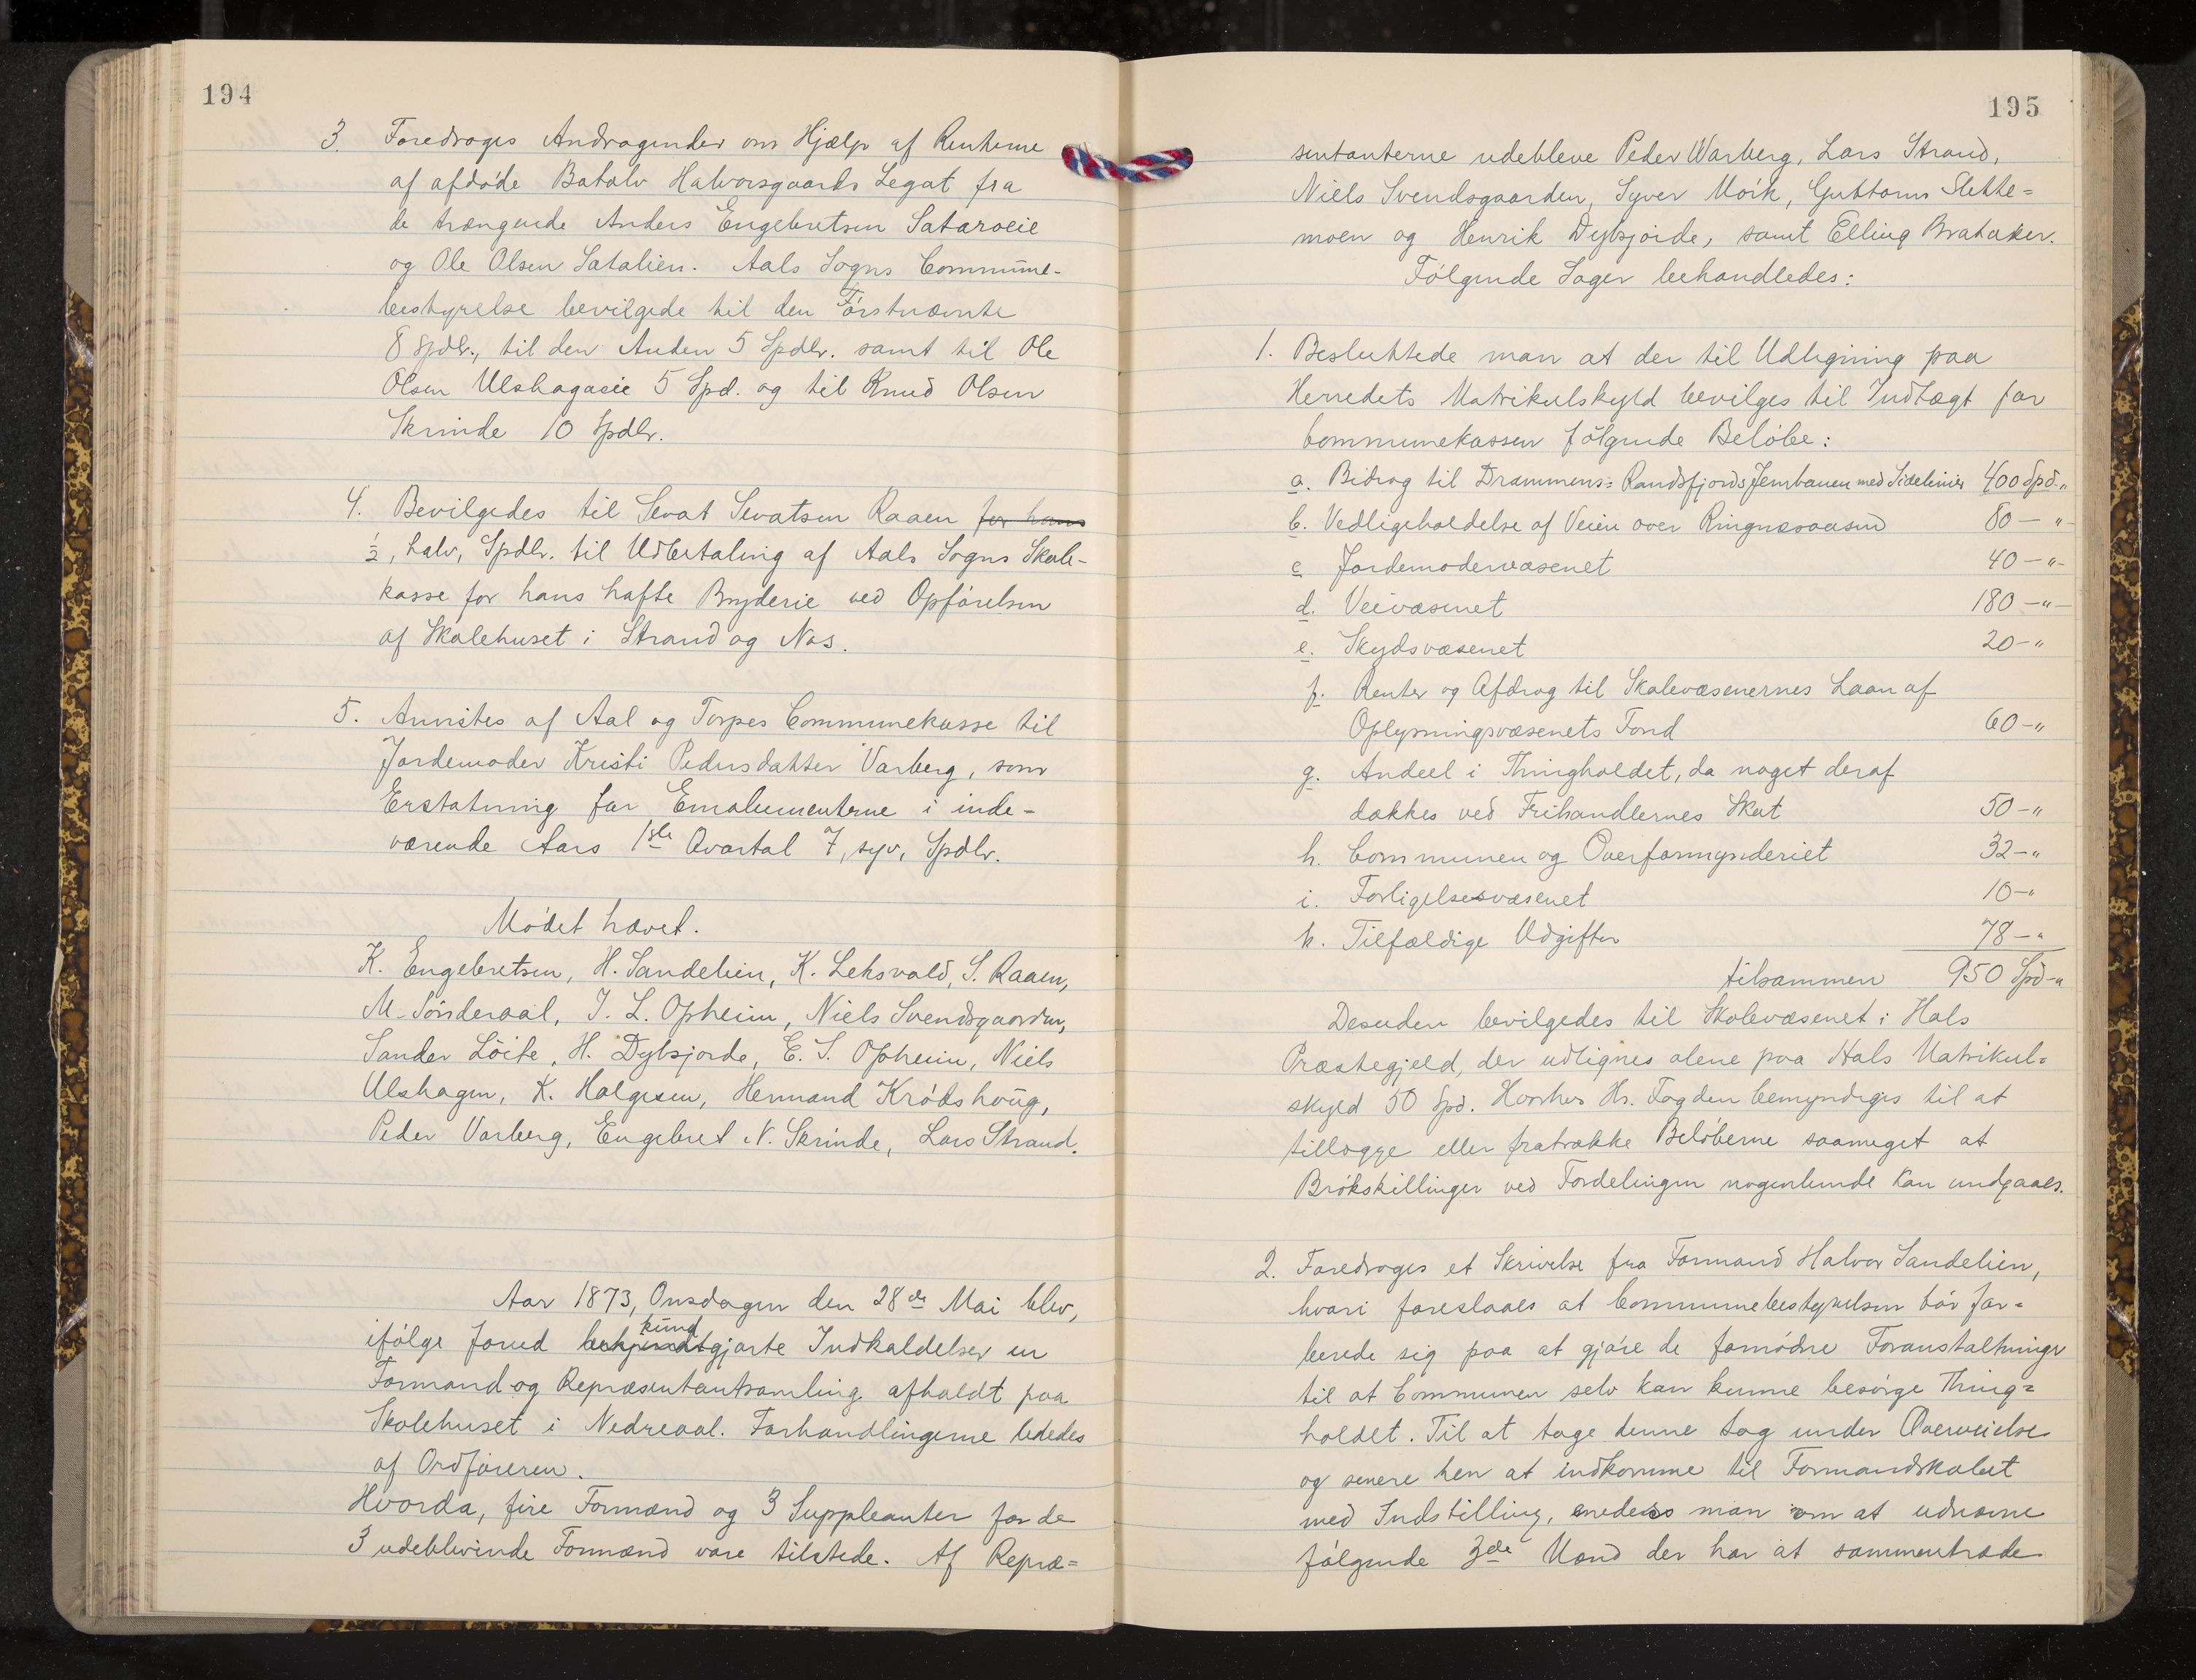 194
3. Foredroges Andragender om Hjælp af Renterne
af afdøde Botolv Halvorsgaards Legat fra
de trængende Anders Engebretsen Sataroeie
og Ole Olsen Satalien. Aals Sogns Commune-
bestyrelse bevilgede til den Førstnævnte
8 Spdlr., til den Anden 5 Spdlr. samt til Ole
Olsen Ulshagaeie 5 Spd. og til Knud Olsen
Skrinde 10 Spdlr.
4. Bevilgedes til Sevat Sevatsen Raaen for hans
½, halv, Spdlr. til Udbetaling af Aals Sogns Skole-
kasse for hans hafte Bryderie ved Opførelsen
af Skolehuset i Strand og Nos.
5. Anvistes af Aal og Torpes Communekasse til
Jordemoder Kristi Pedersdatter Varberg, som
Erstatning for Emolumenterne i inde-
værende Aars 1ste Qvartal 7, syv, Spdlr.
Mødet hævet.
K. Engebretsen, H. Sandelien, K. Leksvold, S. Raaen,
M. Sønderaal, T. L. Opheim, Niels Svendsgaarden,
Sander Löite, H. Dybsjorde, E. S. Opheim, Niels
Ulshagen, K. Holgesen, Hermand Krødshoug,
Peder Varberg, Engebret N. Skrinde, Lars Strand.
Aar 1873, Onsdagen den 28de Mai blev,
kund
ifølge forud bekjendtgjorte Indkaldelser en
Formand og Repræsentantsamling afholdt paa
Skolehuset i Nedreaal. Forhandlingerne lededes
af Ordføreren.
Hvorda, fire Formænd og 3 Suppleanter for de
3 udeblivende Formænd vare tilstede. Af Repræ=
195
sentanterne udebleve Peder Warberg, Lars Strand,
Niels Svendsgaarden, Syver Mørk, Guttorm Slette=
moen og Henrik Dybsjorde, samt Elling Brataker.
Følgende Sager behandledes:
1. Besluttede man at der til Udligning paa
Herredets Matrikulskyld bevilges til Indtægt for
Communekassen følgende Beløbe:
a. Bidrag til Drammens= Randsfjords Jernbanen med Sidelinier 400 Spd. "
b. Vedligeholdelse af Veien over Ringnesaasen 80 — " -
c Jordemodervæsenet 40 — " -
d. Veivæsenet 180 — " —
e. Skydsvæsenet 20 — "
f. Renter og Afdrag til Skolevæsenernes Laan af
Oplysningsvæsenets Fond 60 — "
g. Andeel i Thingholdet, da noget deraf
dækkes ved Frihandlernes Skat 50 — "
h. Communen og Overformynderiet 32 — "
i. Forligelsesvæsenet 10 — "
k. Tilfældige Udgifter 78 — "
tilsammen 950 Spd — "
Desuden bevilgedes til Skolevæsenet i Hols
Præstegjeld, der udlignes alene paa Hols Matrikul=
skyld 50 Spd. Hvorhos Hr. Fogden bemyndiges til at
tillægge eller fratrække Beløberne saameget at
Brøkskillinger ved Fordelingen nogenlunde kan undgaaes.
2. Foredroges et Skrivelse fra Formand Halvor Sandelien,
hvori foreslaaes at Communebestyrelsen bør for=
berede sig paa at gjøre de fornødne Foranstaltninger
til at Communen selv kan kunne besørge Thing=
holdet. Til at tage denne Sag under Overveielse
og senere hen at indkomme til Formandskabet
med Indstilling, enedes man om at udnævne
følgende 3de Mænd der har at sammentræde